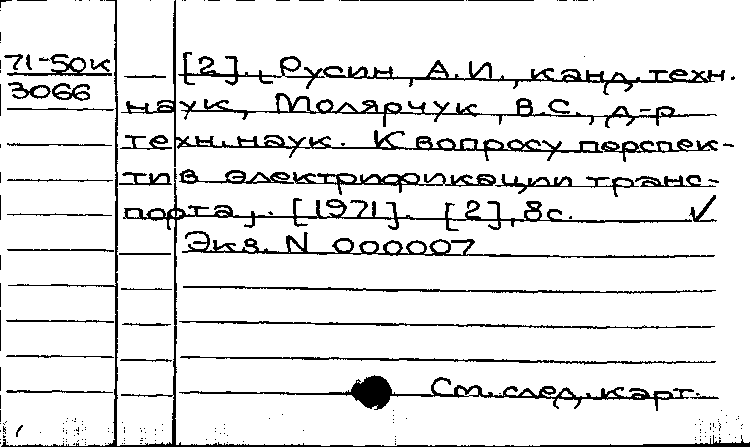 71-50к
3066
[2]. Русин, А.И., канд. техн.
наук, Молярчук, В.С., д-р
техн. наук. К вопросу перспек-
тив электрификации транс-
порта. [1971]. [2], 8с. ✓
Экз. N 000007
См. след. карт.